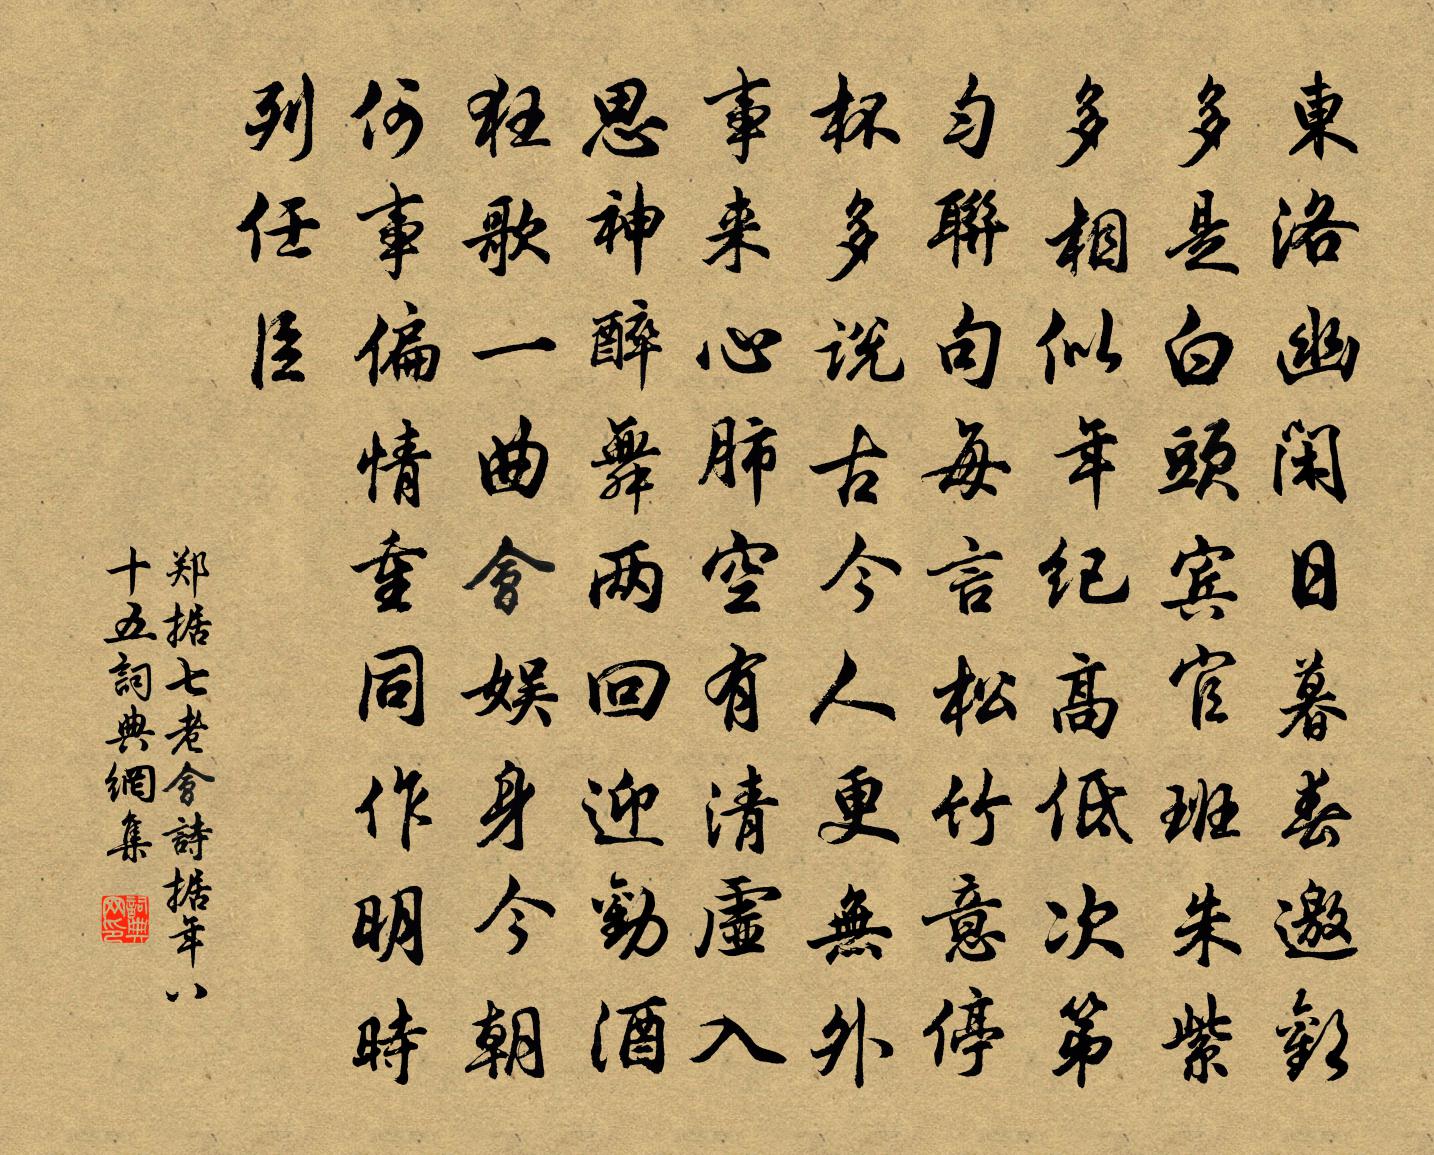 東洛幽閑日暮春邀歡
多是白頭賓官班朱紫
多相似年紀高低次第
勻聯句每言松竹意停
杯多說古今人更無外
事来心肺空有清虛入
思神醉舞两回迎勸酒
狂歌一曲會娱身今朝
何事偏情重同作明時
列任臣
郑据七老會詩据年八
十五詞典網集
詞典网印